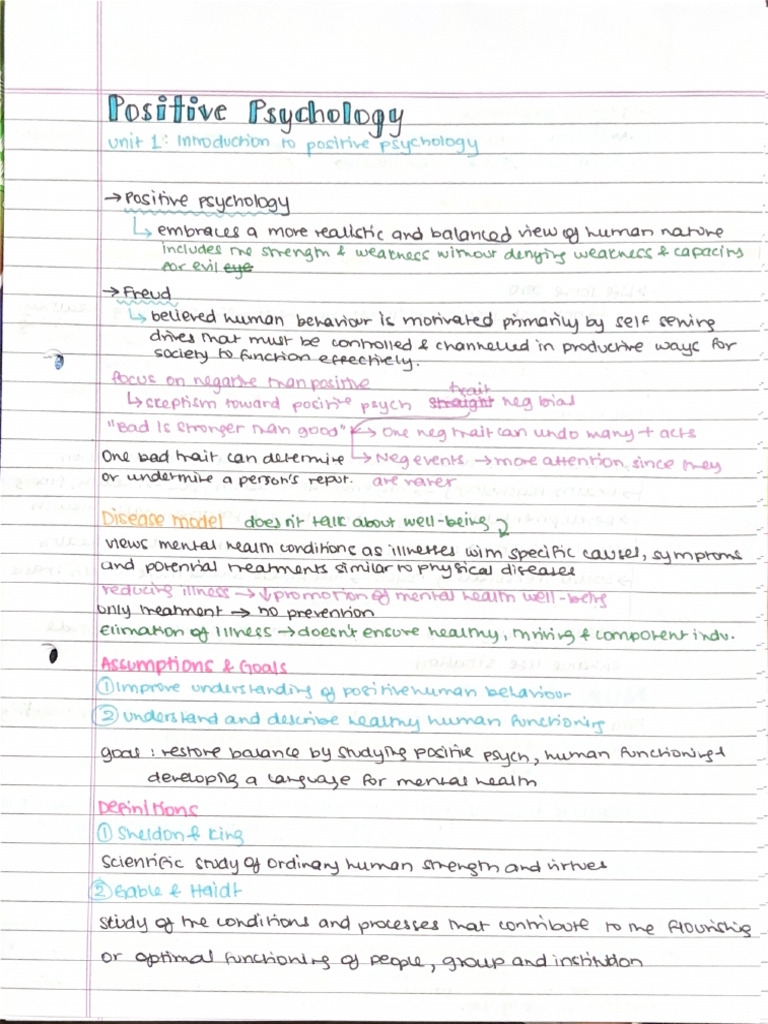 Positive Psychology
Unit 1: Introduction to positive psychology
→ Positive psychology
↳ embraces a more realistic and balanced view of human nature
includes the strength & weakness without denying weakness & capacity
for evil eye
→ Freud
↳ believed human behaviour is motivated primarily by self serving
drives that must be controlled & channelled in productive ways for
society to function effectively.
focus on negative than positive
↳ skeptism toward positive psych straight trait neg bias
"Bad is stronger than good" ↔ One neg trait can undo many + acts
One bad trait can determine → Neg events → more attention since they
or undermine a person's reput. are rarer
Disease model doesn't talk about well-being
views mental health conditions as illnesses with specific causes, symptoms
and potential treatments similar to physical diseases
reducing illness → ↓ promotion of mental health well-being
only treatment → no prevention
Elimation of illness → doesn't ensure healthy, thriving & component indv.
Assumptions & Goals
① Improve understanding of positive human behaviour
② Understand and describe healthy human functioning
goal : restore balance by studying positive psych, human functioning +
developing a language for mental health
Definitions
① Sheldon & King
Scientific study of ordinary human strength and virtues
② Gable & Haidt
study of the conditions and processes that contribute to the flourishig
or optimal functioning of people, group and institution